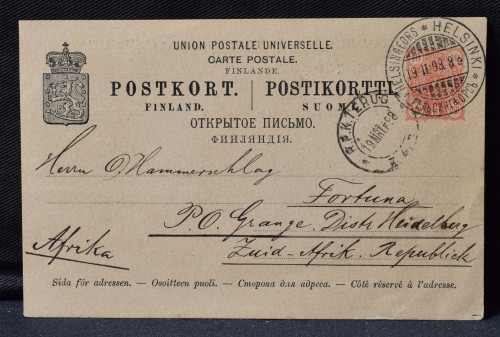 UNION POSTALE UNIVERSELLE.
CARTE POSTALE.
FINLANDE.
POSTKORT. POSTIKORTTI
FINLAND. SUOM
ОТКРЫТОЕ ПИСЬМО.
ФИНЛЯНДІЯ.
HELSINGFORS * HELSINKI *
19.II.98. 8
ГЕЛЬСИНГФОРСЪ
TERUG
19 MAR 98
Herrn O. Hammerschlag
Fortuna
P.O. Grange. Distr Heidelberg
Afrika Zuid-Afrik. Republiek
Sida för adressen. — Osoitteen puoli. — Сторона для адреса. — Côté réservé à l'adresse.